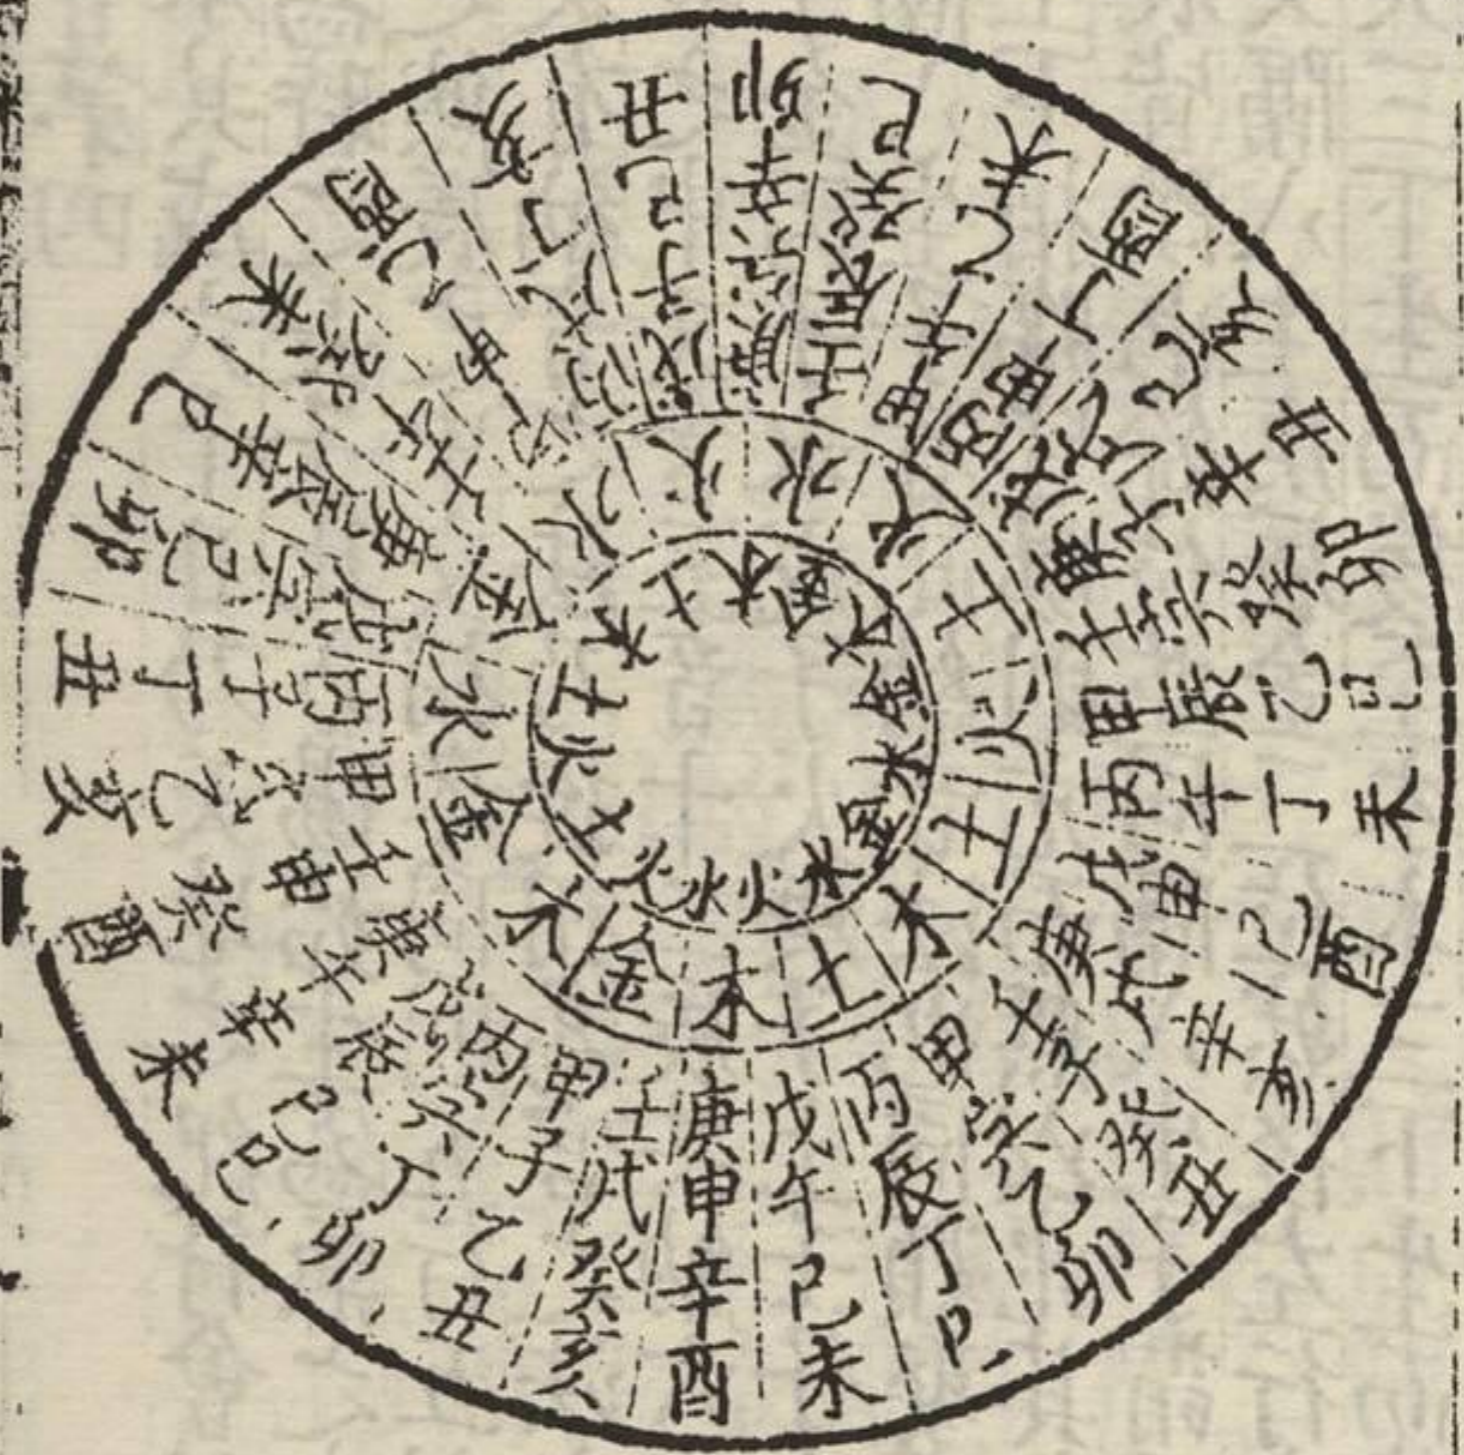 甲子乙丑
丙寅丁卯
戊辰己巳
庚午辛未
壬申癸酉
甲戌乙亥
丙子丁丑
戊寅己卯
庚辰辛巳
壬午癸未
甲申乙酉
丙戌丁亥
戊子己丑
庚寅辛卯
壬辰癸巳
甲午乙未
丙申丁酉
戊戌己亥
庚子辛丑
壬寅癸卯
甲辰乙巳
丙午丁未
戊申己酉
庚戌辛亥
壬子癸丑
甲寅乙卯
丙辰丁巳
戊午己未
庚申辛酉
壬戌癸亥
金木金水金水火水火土火土木土木
火土火土木土木金木金水金水火水